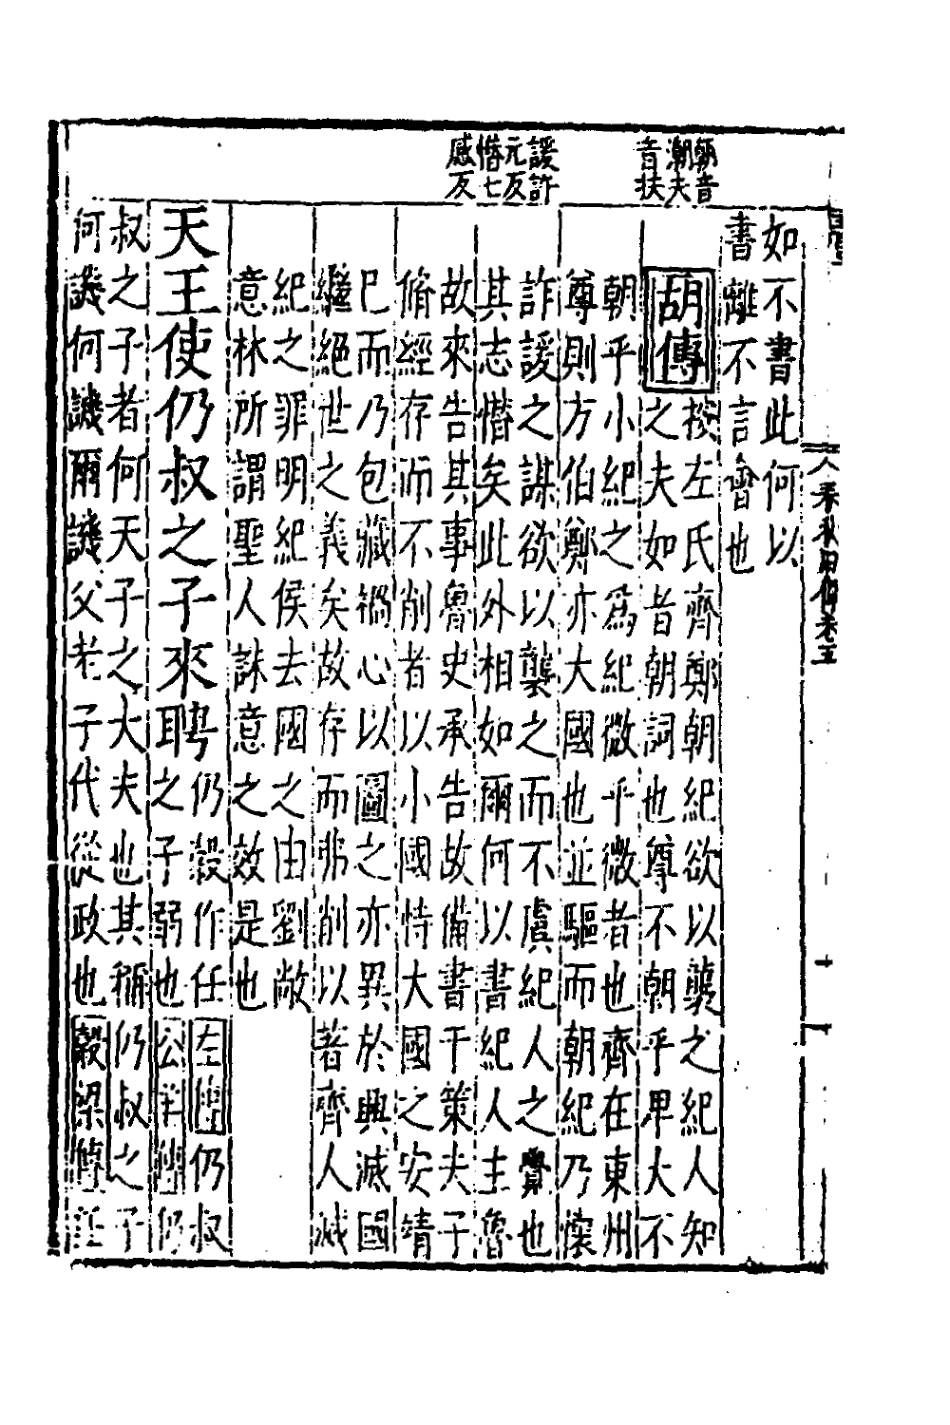 朝音
潮夫
音扶
諼許
元反
憯七
感反
如不書此何以
書離不言會也
胡傳
按左氏齊鄭朝紀欲以襲之紀人知
之夫如者朝詞也尊不朝乎卑大不
朝乎小紀之爲紀微乎微者也齊在東州
尊則方伯鄭亦大國也並驅而朝紀乃懷
詐諼之謀欲以襲之而不虞紀人之覺也
其志憯矣此外相如爾何以書紀人主魯
故來告其事魯史承告故備書于策夫子
脩經存而不削者以小國恃大國之安靖
已而乃包藏禍心以圖之亦異於興滅國
繼絕世之義矣故存而弗削以著齊人滅
紀之罪明紀侯去國之由劉敞
意林所謂聖人誅意之效是也
天王使仍叔之子來聘
仍穀作任
之子弱也
左傳仍叔
公羊傳仍
叔之子者何天子之大夫也其稱仍叔之子
何譏何譏爾譏父老子代從政也穀梁傳任
春秋四傳卷五